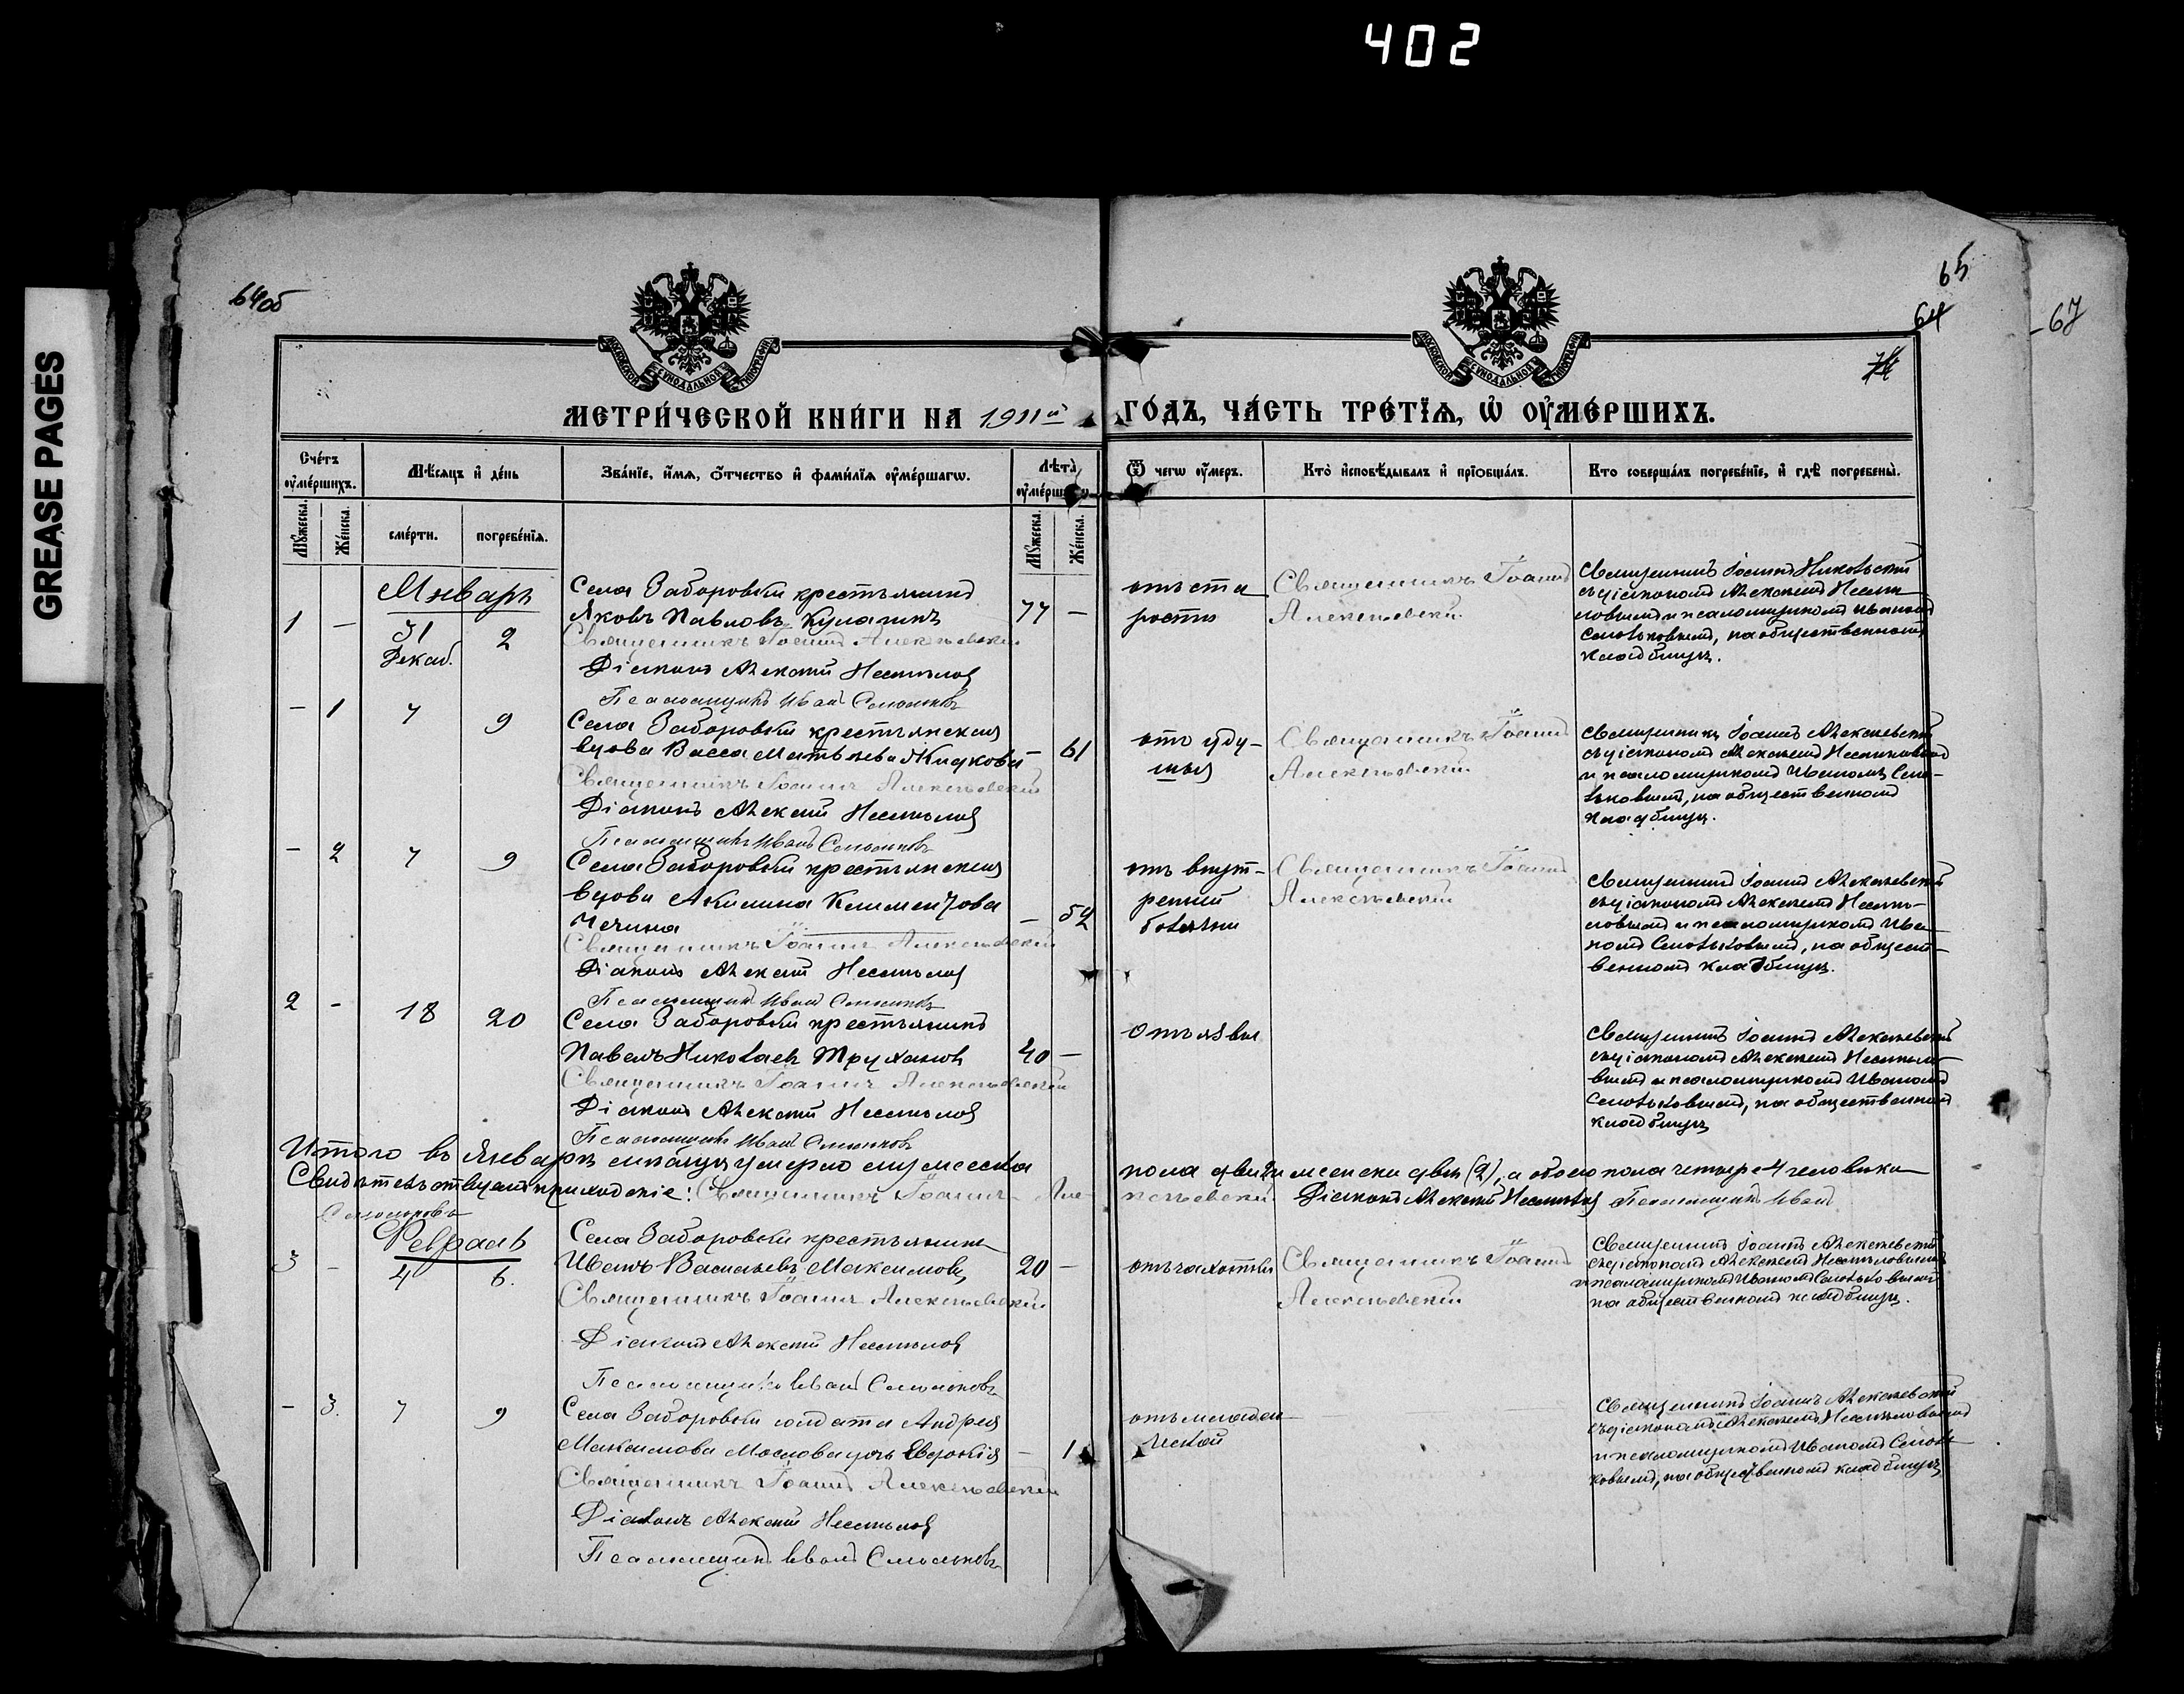 402
GREASE PAGES
64об
65
64
67
МЕТРИ́ЧЕСКОЙ КНИ́ГИ НА 1911й ГО́ДЪ, ЧА́СТЬ ТРЕ́ТЇѦ, Ѡ҆ ОУ҆МЕ́РШИХЪ.
Сче́тъ оу҆ме́ршихъ.
Мѣ́сѧцъ и҆ де́нь
Зва́нїе, и҆́мѧ, ѻ҆́тчество и҆ фамѝлїѧ оу҆ме́ршагѡ.
Лѣ́та оу҆ме́ршагѡ
Ѿ чегѡ̀ оу҆́меръ.
Кто̀ и҆сповѣ́дывалъ и҆ прїѡбща́лъ.
Кто̀ соверша́лъ погребе́нїе, и҆ гдѣ̀ погребены̀.
Мꙋ́жеска.
Же́нска.
сме́рти.
погребе́нїѧ.
Мꙋ́жеска.
Же́нска.
Январь
1 - 31 Декаб. 2
Села Заборовки крестьянинъ
Яковъ Павловъ Кулагинъ 77 -
Священникъ Іоаннъ Алексѣевскій
Діаконъ Алексѣй Несмѣловъ
Псаломщикъ Иванъ Смольковъ
отъ ста
рости
Священникъ Іоаннъ
Алексѣевскій
Священникъ Іоаннъ Никольскій
съ діакономъ Алексѣемъ Несмѣ-
ловымъ и псаломщикомъ Иваномъ
Смольковымъ, на общественномъ
кладбищѣ.
- 1 7 9
Села Заборовки крестьянская
вдова Васса Матвѣева Жидкова - 61
Священникъ Іоаннъ Алексѣевскій
Діаконъ Алексѣй Несмѣловъ
Псаломщикъ Иванъ Смольковъ
отъ уду-
шья
Священникъ Іоаннъ
Алексѣевскій
Священникъ Іоаннъ Алексѣевскій
съ діакономъ Алексѣемъ Несмѣловымъ
и псаломщикомъ Иваномъ Смо-
льковымъ, на общественномъ
кладбищѣ.
- 2 7 9
Села Заборовки крестьянская
вдова Акилина Климентова
Мечина - 52
Священникъ Іоаннъ Алексѣевскій
Діаконъ Алексѣй Несмѣловъ
Псаломщикъ Иванъ Смольковъ
отъ внут-
ренней
болѣзни
Священникъ Іоаннъ
Алексѣевскій
Священникъ Іоаннъ Алексѣевскій
съ діакономъ Алексѣемъ Несмѣ-
ловымъ и псаломщикомъ Ива-
номъ Смольковымъ, на общест-
венномъ кладбищѣ.
2 - 18 20
Села Заборовки крестьянинъ
Павелъ Николаевъ Трухановъ 40 -
Священникъ Іоаннъ Алексѣевскій
Діаконъ Алексѣй Несмѣловъ
Псаломщикъ Иванъ Смольковъ
отъ язвы
Священникъ Іоаннъ Алексѣевскій
съ діакономъ Алексѣемъ Несмѣло-
вымъ и псаломщикомъ Иваномъ
Смольковымъ, на общественномъ
кладбищѣ
Итого въ Январѣ мѣсяцѣ умерло мужеска пола два и женска двѣ (2), а обоего пола четыре 4 человѣка
Свидѣтельствуетъ Священникъ Іоаннъ Алексѣевскій Діаконъ Алексѣй Несмѣловъ Псаломщикъ Иванъ
Смольковъ
Февраль
3 - 4 6.
Села Заборовки крестьянинъ
Иванъ Васильевъ Максимовъ 20 -
Священникъ Іоаннъ Алексѣевскій
Діаконъ Алексѣй Несмѣловъ
Псаломщикъ Иванъ Смольковъ
отъ чахотки
Священникъ Іоаннъ
Алексѣевскій
Священникъ Іоаннъ Алексѣевскій
съ діакономъ Алексѣемъ Несмѣловымъ
и псаломщикомъ Иваномъ Смольковымъ
на общественномъ кладбищѣ.
- 3. 7 9
Села Заборовки солдата Андрея
Максимова Маслова дочь Евдокія - 1
Священникъ Іоаннъ Алексѣевскій
Діаконъ Алексѣй Несмѣловъ
Псаломщикъ Иванъ Смольковъ
отъ младен
ческой
Священникъ Іоаннъ Алексѣевскій
съ діакономъ Алексѣемъ Несмѣловымъ
и псаломщикомъ Иваномъ Смоль-
ковымъ, на общественномъ кладбищѣ